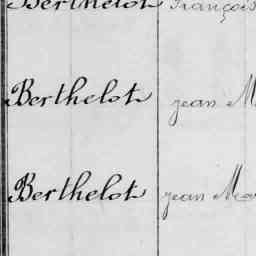 Berthelot François
Berthelot jean M
Berthelot jean Ma